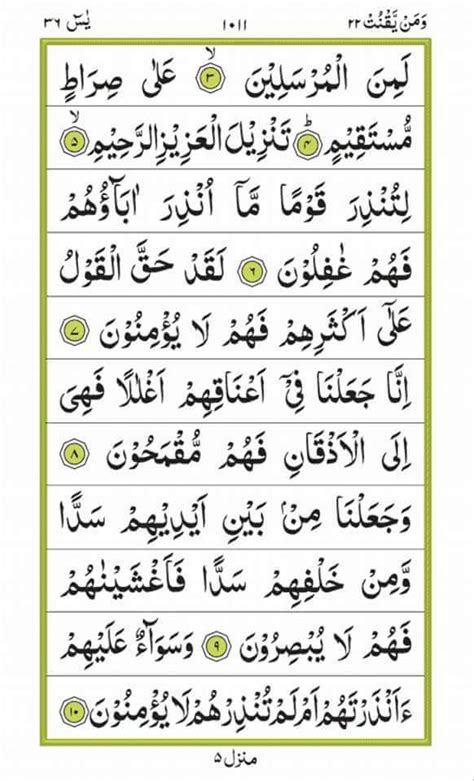 وَمَنْ يَّقْنُتْ ٢٢ ١٠١١ يٰسٓ ٣٦
لَمِنَ الْمُرْسَلِيْنَ ۙ﴿٣﴾ عَلٰى صِرَاطٍ
مُّسْتَقِيْمٍ ؕ﴿٤﴾ تَنْزِيْلَ الْعَزِيْزِ الرَّحِيْمِ ۙ﴿٥﴾
لِتُنْذِرَ قَوْمًا مَّاۤ اُنْذِرَ اٰبَآؤُهُمْ
فَهُمْ غٰفِلُوْنَ ﴿٦﴾ لَقَدْ حَقَّ الْقَوْلُ
عَلٰۤى اَكْثَرِهِمْ فَهُمْ لَا يُؤْمِنُوْنَ ﴿٧﴾
اِنَّا جَعَلْنَا فِيْۤ اَعْنَاقِهِمْ اَغْلٰلًا فَهِيَ
اِلَى الْاَذْقَانِ فَهُمْ مُّقْمَحُوْنَ ﴿٨﴾
وَجَعَلْنَا مِنْۢ بَيْنِ اَيْدِيْهِمْ سَدًّا
وَّمِنْ خَلْفِهِمْ سَدًّا فَاَغْشَيْنٰهُمْ
فَهُمْ لَا يُبْصِرُوْنَ ﴿٩﴾ وَسَوَآءٌ عَلَيْهِمْ
ءَاَنْذَرْتَهُمْ اَمْ لَمْ تُنْذِرْهُمْ لَا يُؤْمِنُوْنَ ﴿١٠﴾
منزل ٥